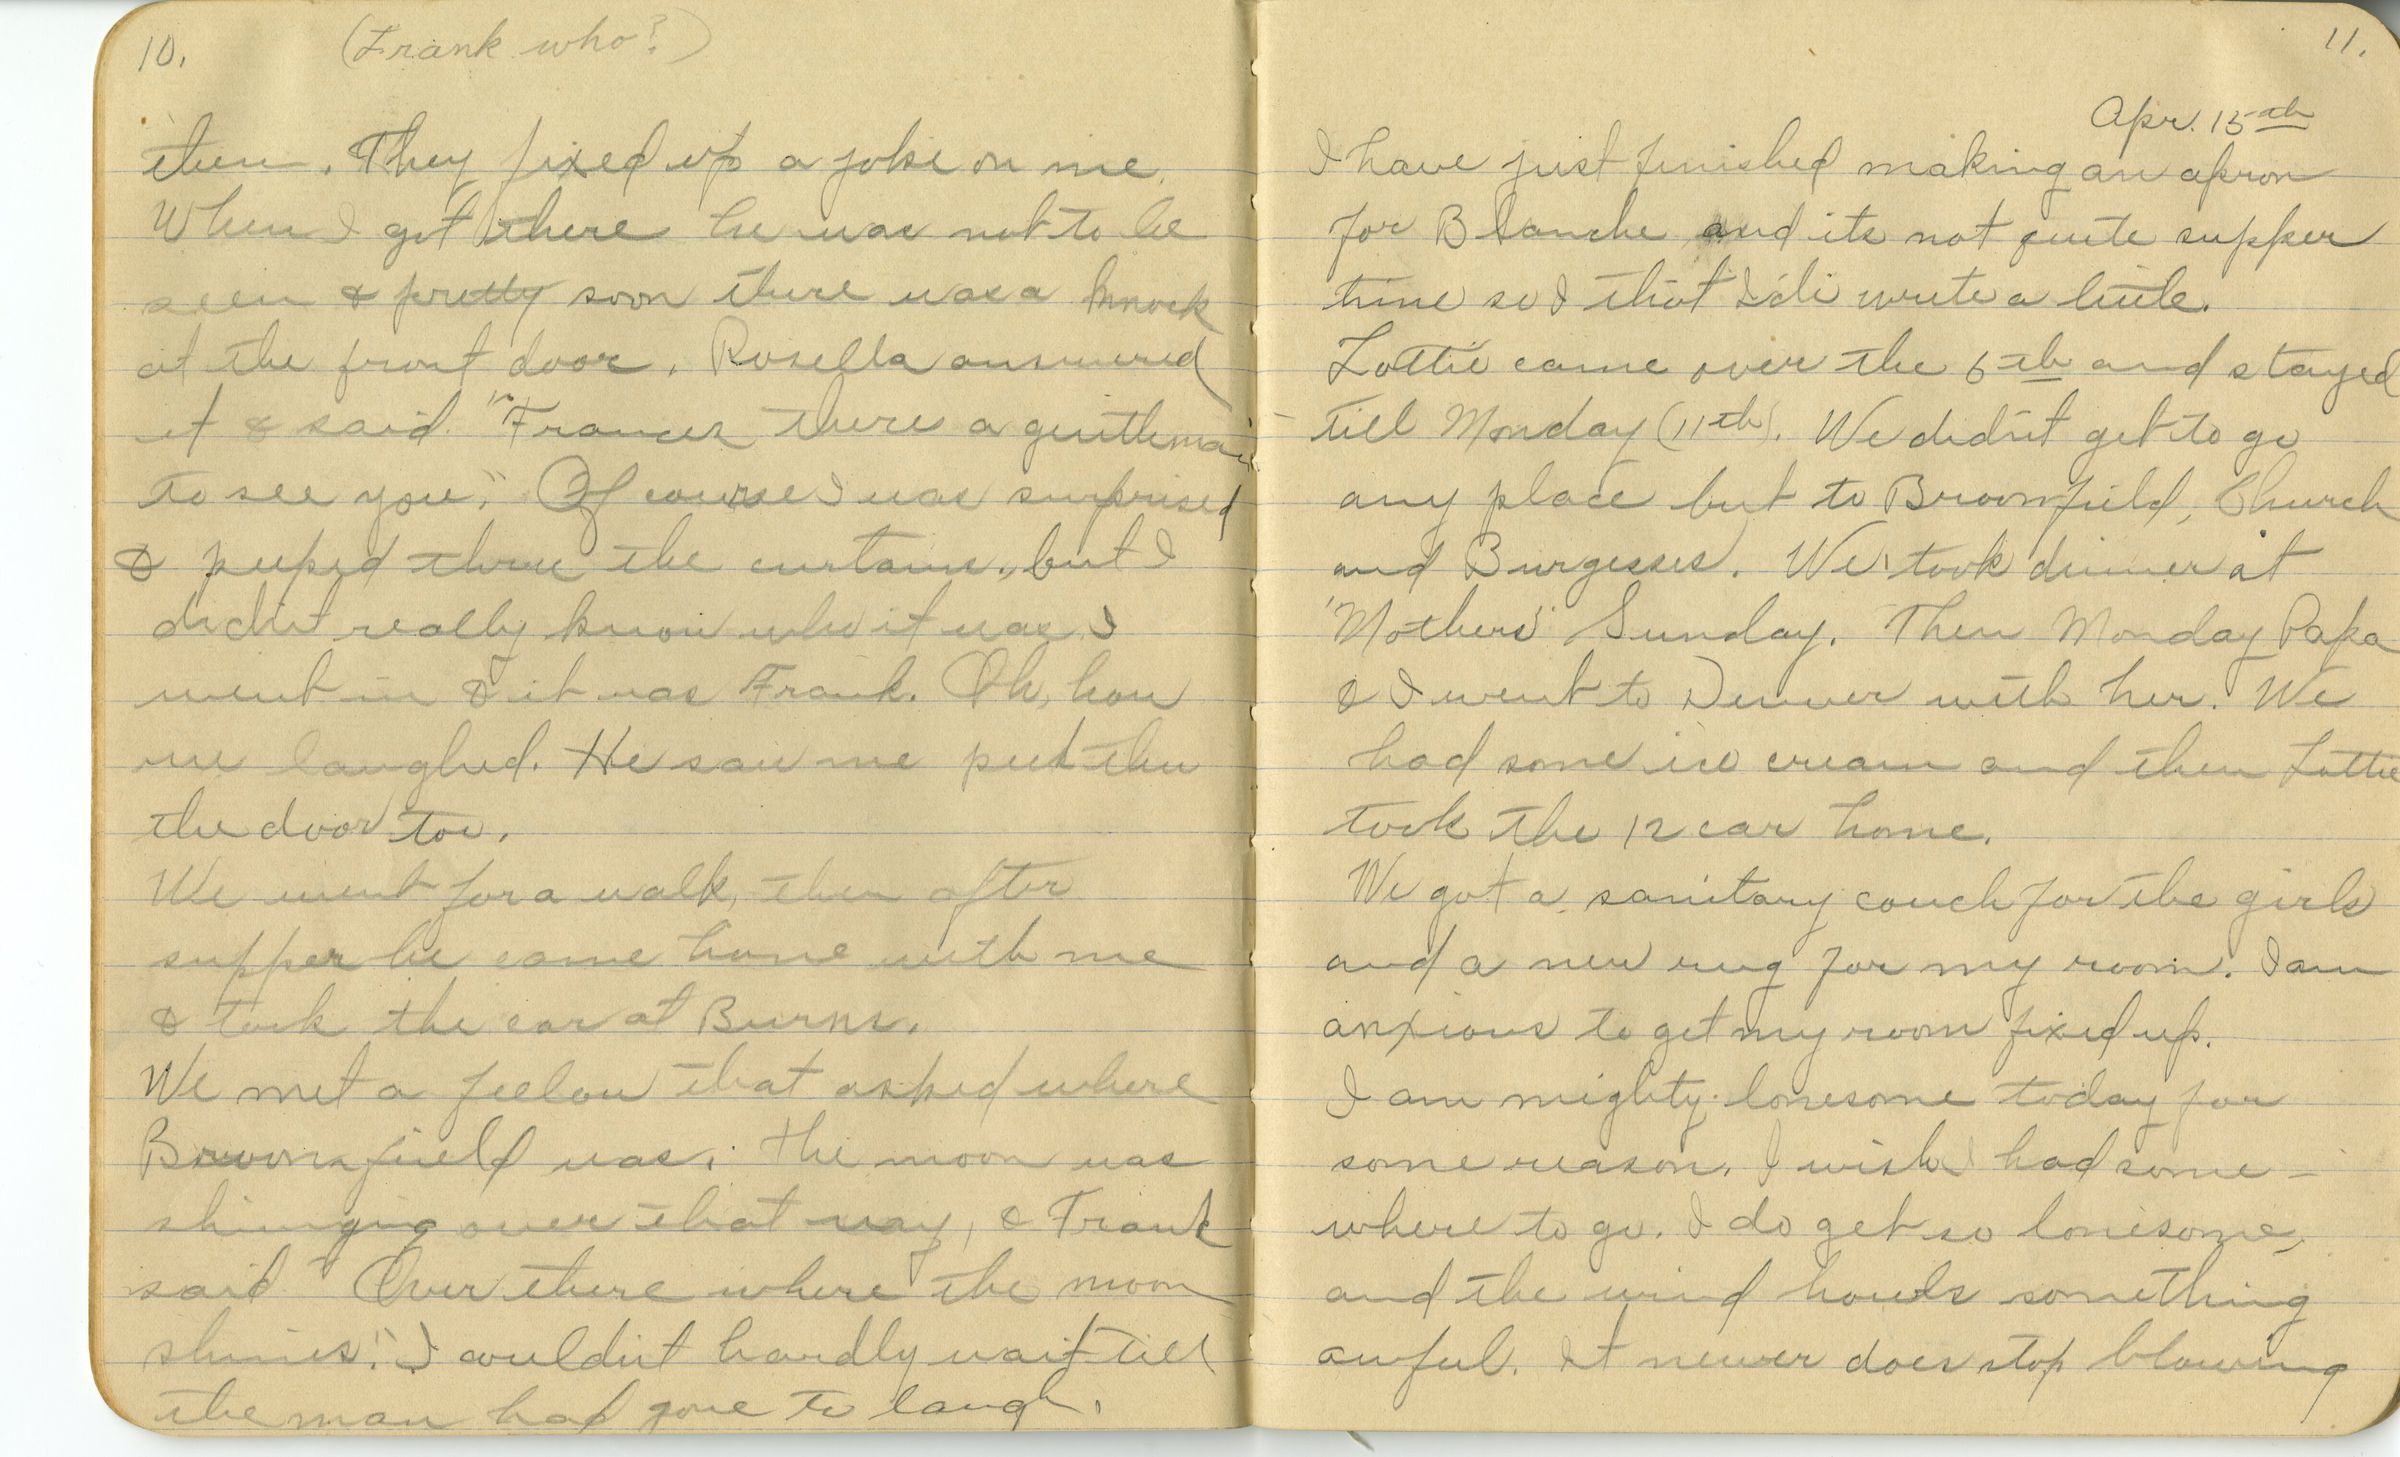 10.
(Frank who?)
then. They fixed up a joke on me.
When I got there he was not to be
seen & pretty soon there was a knock
at the front door. Rosella answered
it & said "Frances there a gentleman
to see you." Of course I was surprised
& peeped thru the curtains, but I
didn't really know who it was. I
went in & it was Frank. Oh, how
we laughed. He saw me peek thru
the door too.
We went for a walk, then after
supper he came home with me
& took the car at Burns.
We met a fellow that asked where
Broomfield was. The moon was
shinging over that way, & Frank
said "Over there where the moon
shines." I couldn't hardly wait till
the man had gone to laugh.
11.
Apr. 15th
I have just finished making an apron
for Blanche and its not quite supper
time so I thot I'd write a little.
Lottie came over the 6th and stayed
till Monday (11th). We didn't get to go
any place but to Broomfield, Church
and Burgesses. We took dinner at
"Mothers" Sunday. Then Monday Papa
& I went to Denver with her. We
had some ice cream and then Lottie
took the 12 car home.
We got a sanitary couch for the girls
and a new rug for my room. I am
anxious to get my room fixed up.
I am mighty lonesome today for
some reason. I wish I had some-
where to go. I do get so lonesome,
and the wind howls something
awful. It never does stop blowing